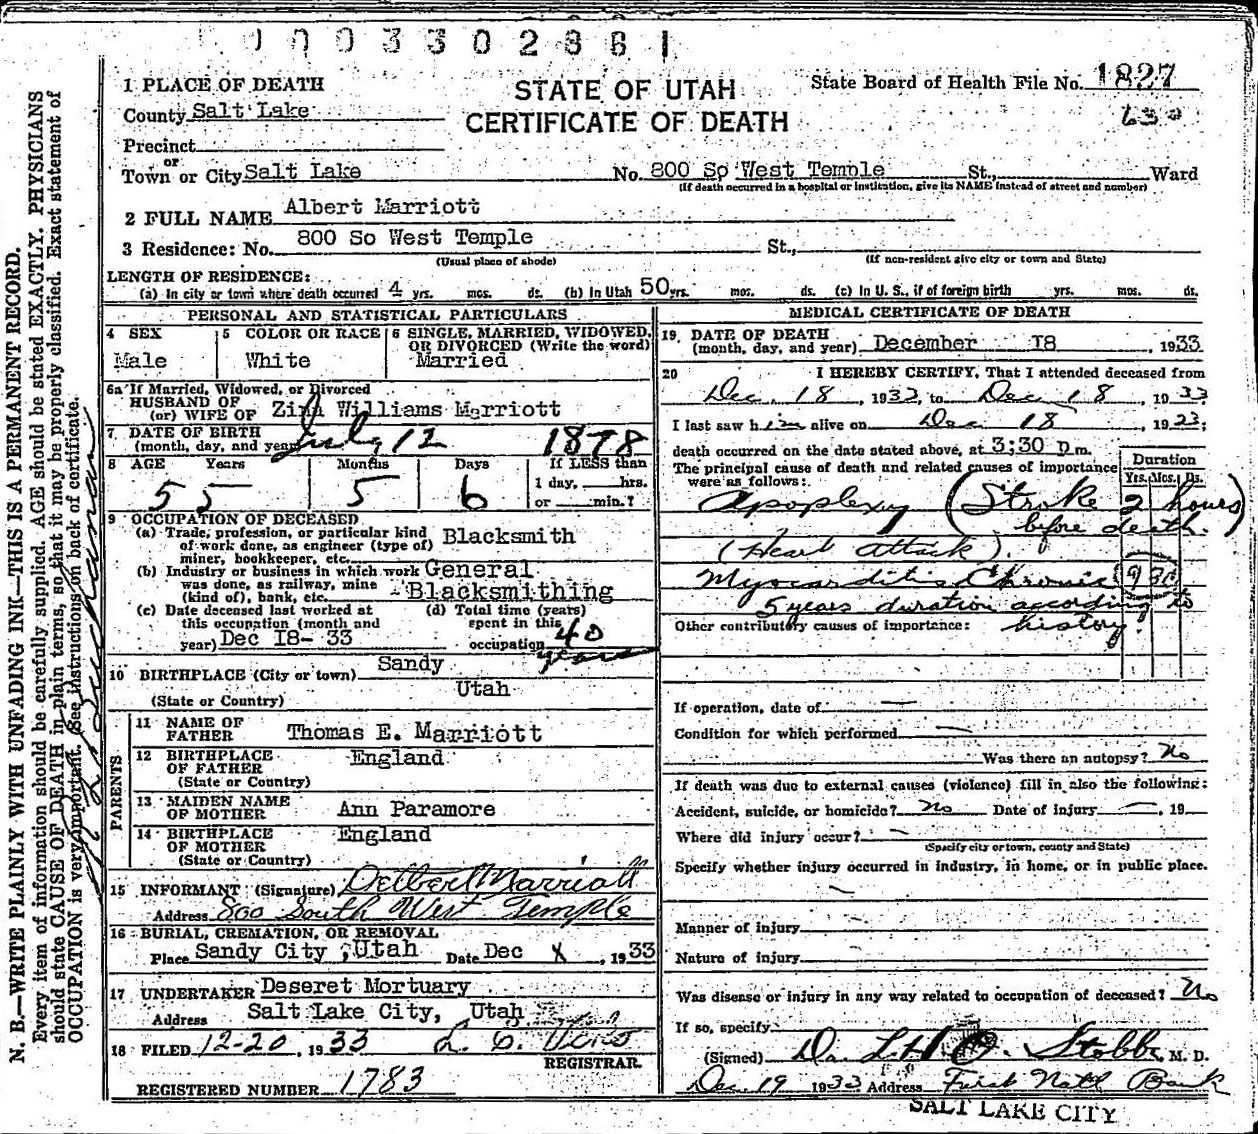 0003302881
1 PLACE OF DEATH
STATE OF UTAH
CERTIFICATE OF DEATH
State Board of Health File No. 1827
630
County Salt Lake
Precinct
or
Town or City Salt Lake No. 800 So West Temple St., Ward
(If death occurred in a hospital or institution, give its NAME instead of street and number)
2 FULL NAME Albert Marriott
3 Residence: No. 800 So West Temple St.,
(Usual place of abode) (If non-resident give city or town and State)
LENGTH OF RESIDENCE:
(a) In city or town where death occurred 4 yrs. mos. ds. (b) In Utah 50 yrs. mos. ds. (c) In U. S., if of foreign birth yrs. mos. ds.
PERSONAL AND STATISTICAL PARTICULARS
4 SEX 5 COLOR OR RACE 6 SINGLE, MARRIED, WIDOWED, OR DIVORCED (Write the word)
Male White Married
6a If Married, Widowed, or Divorced
HUSBAND OF
(or) WIFE OF Zina Williams Marriott
7 DATE OF BIRTH
(month, day, and year) July 12 1878
8 AGE Years Months Days If LESS than
1 day, hrs.
or min.?
55 5 6
9 OCCUPATION OF DECEASED
(a) Trade, profession, or particular kind of work done, as engineer (type of) miner, bookkeeper, etc. Blacksmith
(b) Industry or business in which work was done, as railway, mine (kind of), bank, etc. General Blacksmithing
(c) Date deceased last worked at this occupation (month and year) Dec 18- 33
(d) Total time (years) spent in this occupation 40 years
10 BIRTHPLACE (City or town) Sandy
(State or Country) Utah
PARENTS
11 NAME OF FATHER Thomas E. Marriott
12 BIRTHPLACE OF FATHER England
(State or Country)
13 MAIDEN NAME OF MOTHER Ann Paramore
14 BIRTHPLACE OF MOTHER England
(State or Country)
15 INFORMANT (Signature) Delbert Marriott
Address 800 South West Temple
16 BURIAL, CREMATION, OR REMOVAL
Place Sandy City, Utah Date Dec X, 1933
17 UNDERTAKER Deseret Mortuary
Address Salt Lake City, Utah
18 FILED 12-20, 1933
REGISTRAR.
REGISTERED NUMBER 1783
MEDICAL CERTIFICATE OF DEATH
19 DATE OF DEATH
(month, day, and year) December 18, 1933
20 I HEREBY CERTIFY, That I attended deceased from
Dec. 18, 1933, to Dec 18, 1933
I last saw him alive on Dec 18, 1933;
death occurred on the date stated above, at 3:30 p m.
The principal cause of death and related causes of importance were as follows:
Duration
Yrs. Mos. Ds.
Apoplexy (Stroke 2 hours
before death.)
(Heart attack).
Myocarditis Chronic 930
5 years duration according to
history.
Other contributory causes of importance:
If operation, date of —
Condition for which performed —
Was there an autopsy? No
If death was due to external causes (violence) fill in also the following:
Accident, suicide, or homicide? No Date of injury —, 19
Where did injury occur? —
(Specify city or town, county and State)
Specify whether injury occurred in industry, in home, or in public place.
—
Manner of injury —
Nature of injury —
Was disease or injury in any way related to occupation of deceased? No
If so, specify
(Signed) Stobbe, M. D.
Dec. 19 1933 Address First Natl Bank
SALT LAKE CITY
N. B.—WRITE PLAINLY WITH UNFADING INK—THIS IS A PERMANENT RECORD.
Every item of information should be carefully supplied. AGE should be stated EXACTLY. PHYSICIANS
should state CAUSE OF DEATH in plain terms, so that it may be properly classified. Exact statement of
OCCUPATION is very important. (See instructions on back of certificate.